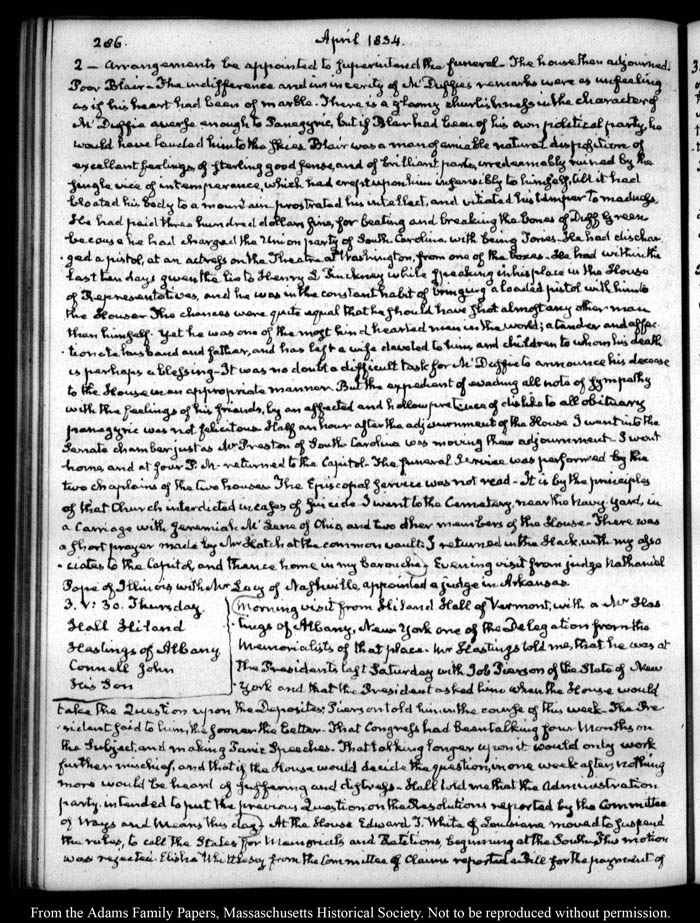 286. April 1834.
2 — Arrangements be appointed to superintend the funeral — The house then adjourned.
Poor Blair — The indifference and insincerity of Mc Duffie's remarks were as unfeeling
as if his heart had been of marble. There is a gloomy churlishness in the character of
Mc Duffie averse enough to Panegyric, but if Blair had been of his own political party, he
would have lauded him to the skies. Blair was a man of amiable natural disposition, of
excellent feelings, of sterling good sense, and of brilliant parts, irredeemably ruined by the
single vice of intemperance, which had crept upon him insensibly to himself, till it had
bloated his body to a mountain, prostrated his intellect, and vitiated his temper to madness.
He had paid three hundred dollars fine, for beating and breaking the bones of Duff Green
because he had charged the Union party of South Carolina, with being Tories. He had dischar
ged a pistol, at an actress on the Theatre at Washington, from one of the boxes. He had within the
last ten days given the lie to Henry L Pinckney while speaking in his place in the House
of Representatives, and he was in the constant habit of bringing a loaded pistol with him to
the House. The chances were quite equal that he should have shot almost any other man
than himself. Yet he was one of the most kind hearted men in the world; a tender and affec
tionate husband and father, and has left a wife devoted to him and children to whom his death
is perhaps a blessing — It was no doubt a difficult task for Mc Duffie to announce his decease
to the House in an appropriate manner. But the expedient of evading all note of sympathy
with the feelings of his friends, by an affected and hollow pretence of dislike to all obituary
panegyric was not felicitous. Half an hour after the adjournment of the House I went into the
Senate chamber just as Mr Preston of South Carolina was moving their adjournment. I went
home, and at four P.M. returned to the Capitol — The funeral Service was performed by the
two chaplains of the two houses. The Episcopal Service was not read — It is by the principles
of that Church interdicted in cases of Suicide. I went to the Cemetery, near the Navy Yard, in
a Carriage with Jeremiah Mc Lene of Ohio, and two other members of the House — There was
a short prayer made by Mr Hatch at the common vault; I returned in the Hack, with my asso
ciates to the Capitol, and thence home in my barouche. Evening visit from Judge Nathaniel
Pope of Illinois with Mr Lacy of Nashville appointed a judge in Arkansas.
3. V: 30. Thursday.
Hall Hiland
Hastings of Albany
Connell John
His Son
Morning visit from Hiland Hall of Vermont, with a Mr Has
tings of Albany, New York one of the Delegation from the
Memorialists of that place. Mr Hastings told me, that he was at
the Presidents last Saturday with Job Pierson of the State of New
York and that the President asked him when the House would
take the Question upon the Deposites. Pierson told him in the course of this week. The Pre
sident said to him, the sooner the better. That Congress had been talking four Months on
the Subject, and making Panic Speeches. That talking longer upon it would only work
further mischief, and that if the House would decide the question, in one week after, nothing
more would be heard of suffering and distress — Hall told me that the Administration
party, intended to put the previous Question on the Resolutions reported by the Committee
of Ways and Means this day. At the House Edward D. White of Louisiana moved to suspend
the rules, to call the States for Memorials and Petitions, beginning at the South. This motion
was rejected. Elisha Whittlesey from the Committee of Claims reported a Bill for the payment of
From the Adams Family Papers, Massachusetts Historical Society. Not to be reproduced without permission.